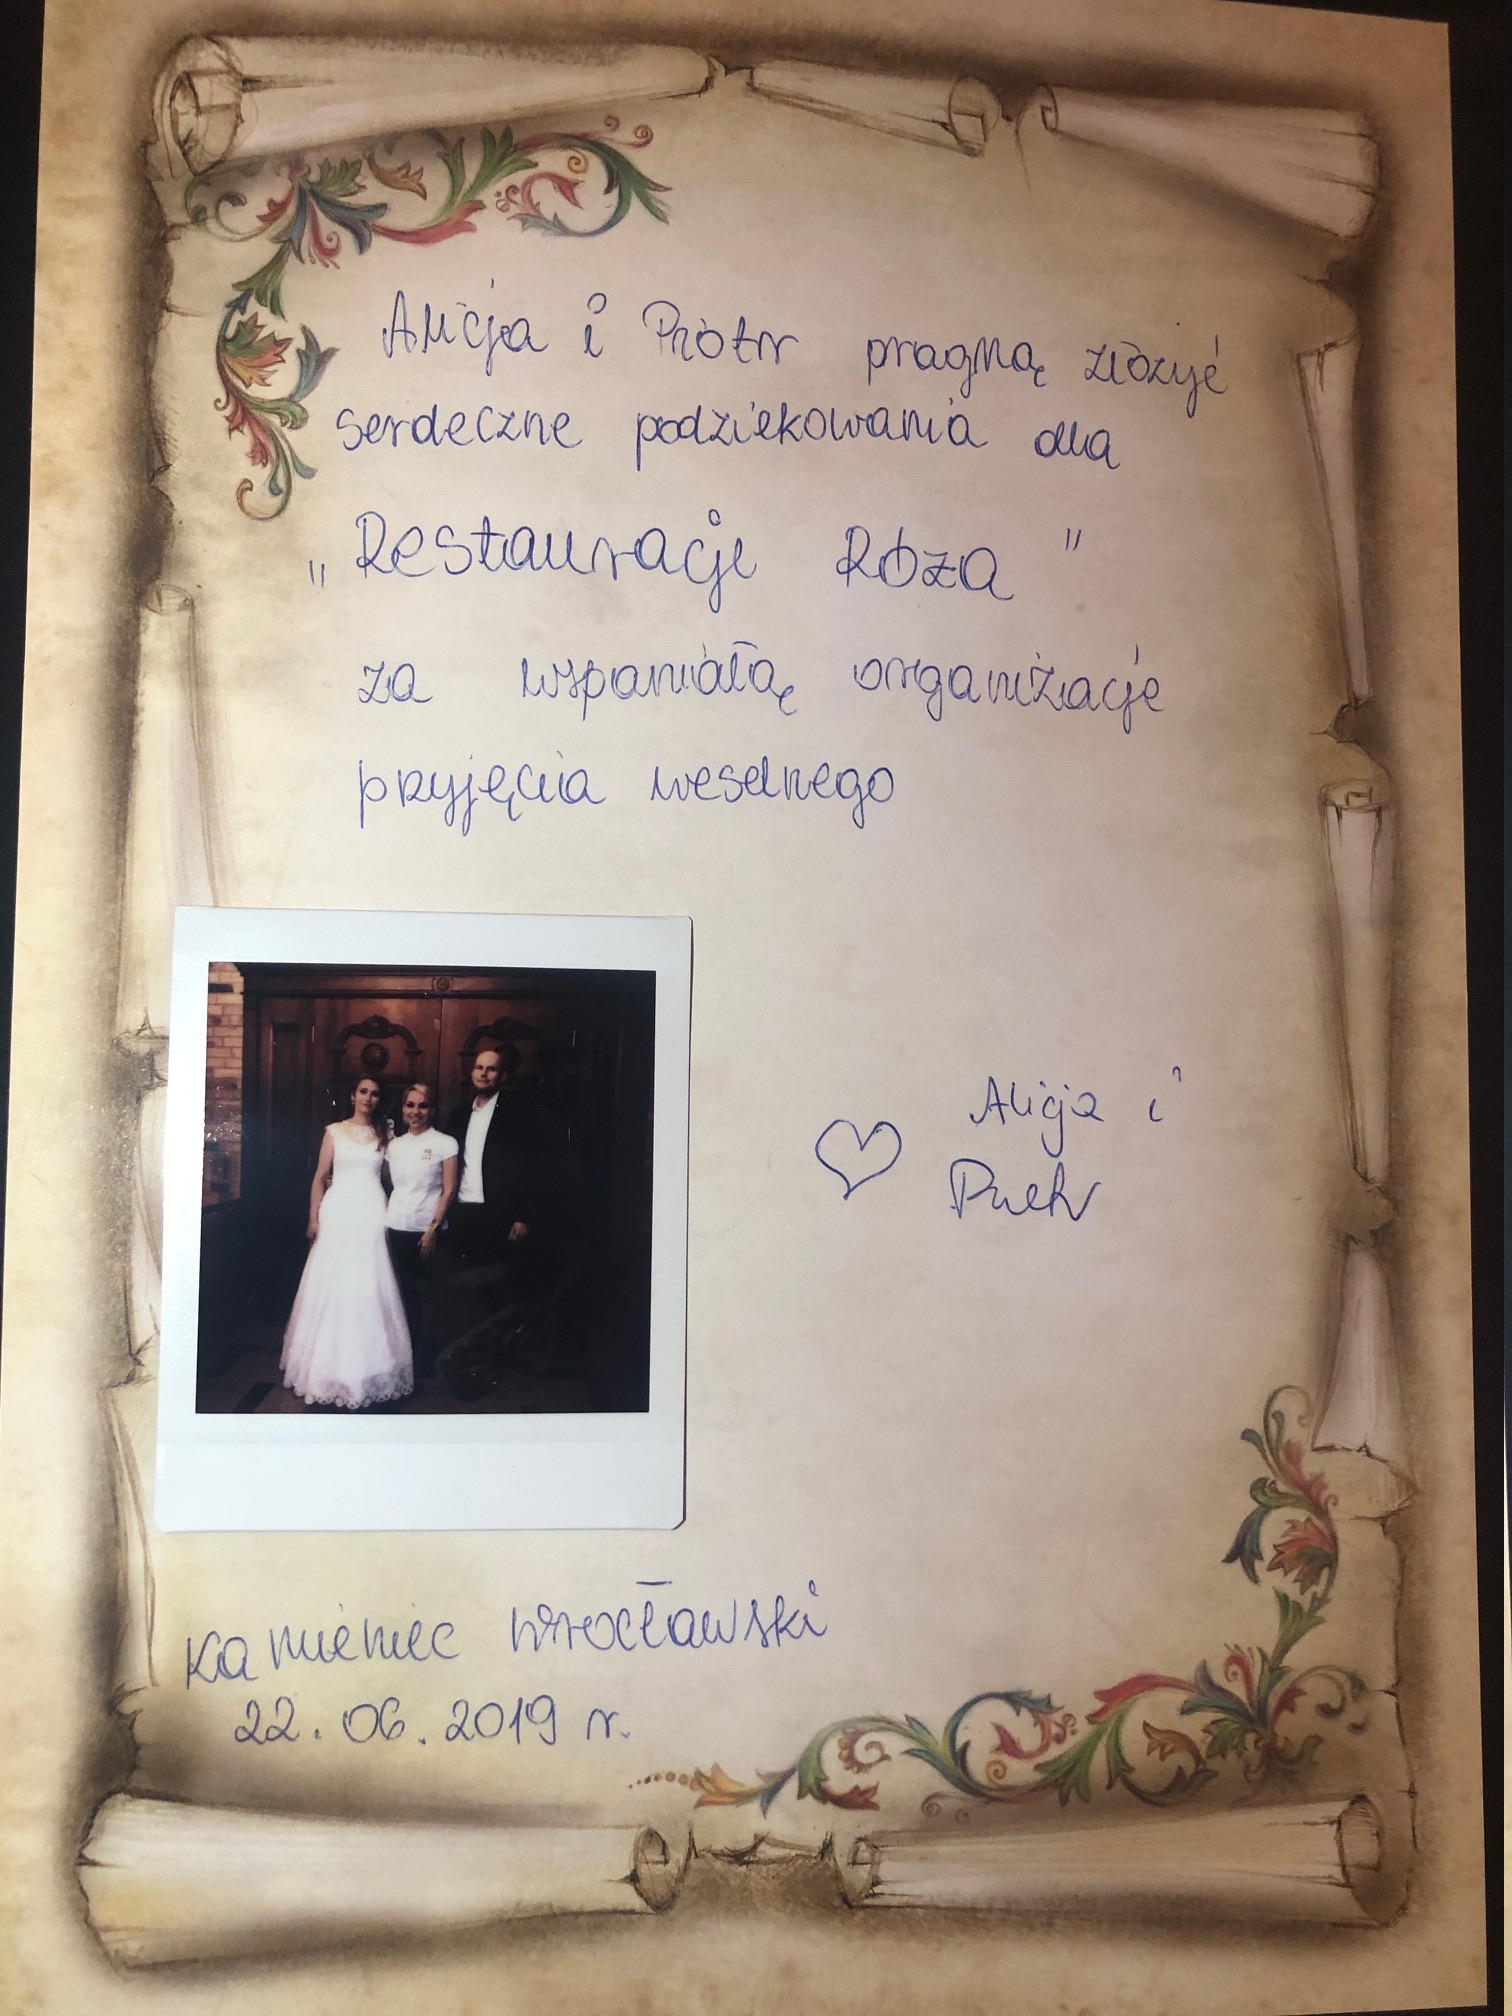 Alicja i Piotr pragną złożyć
serdeczne podziekowania dla
„Restauracji Róża"
za wspaniałą organizacje
przyjęcia weselnego
Alicja i
Piotr
Kamieniec Wrocławski
22.06.2019 r.